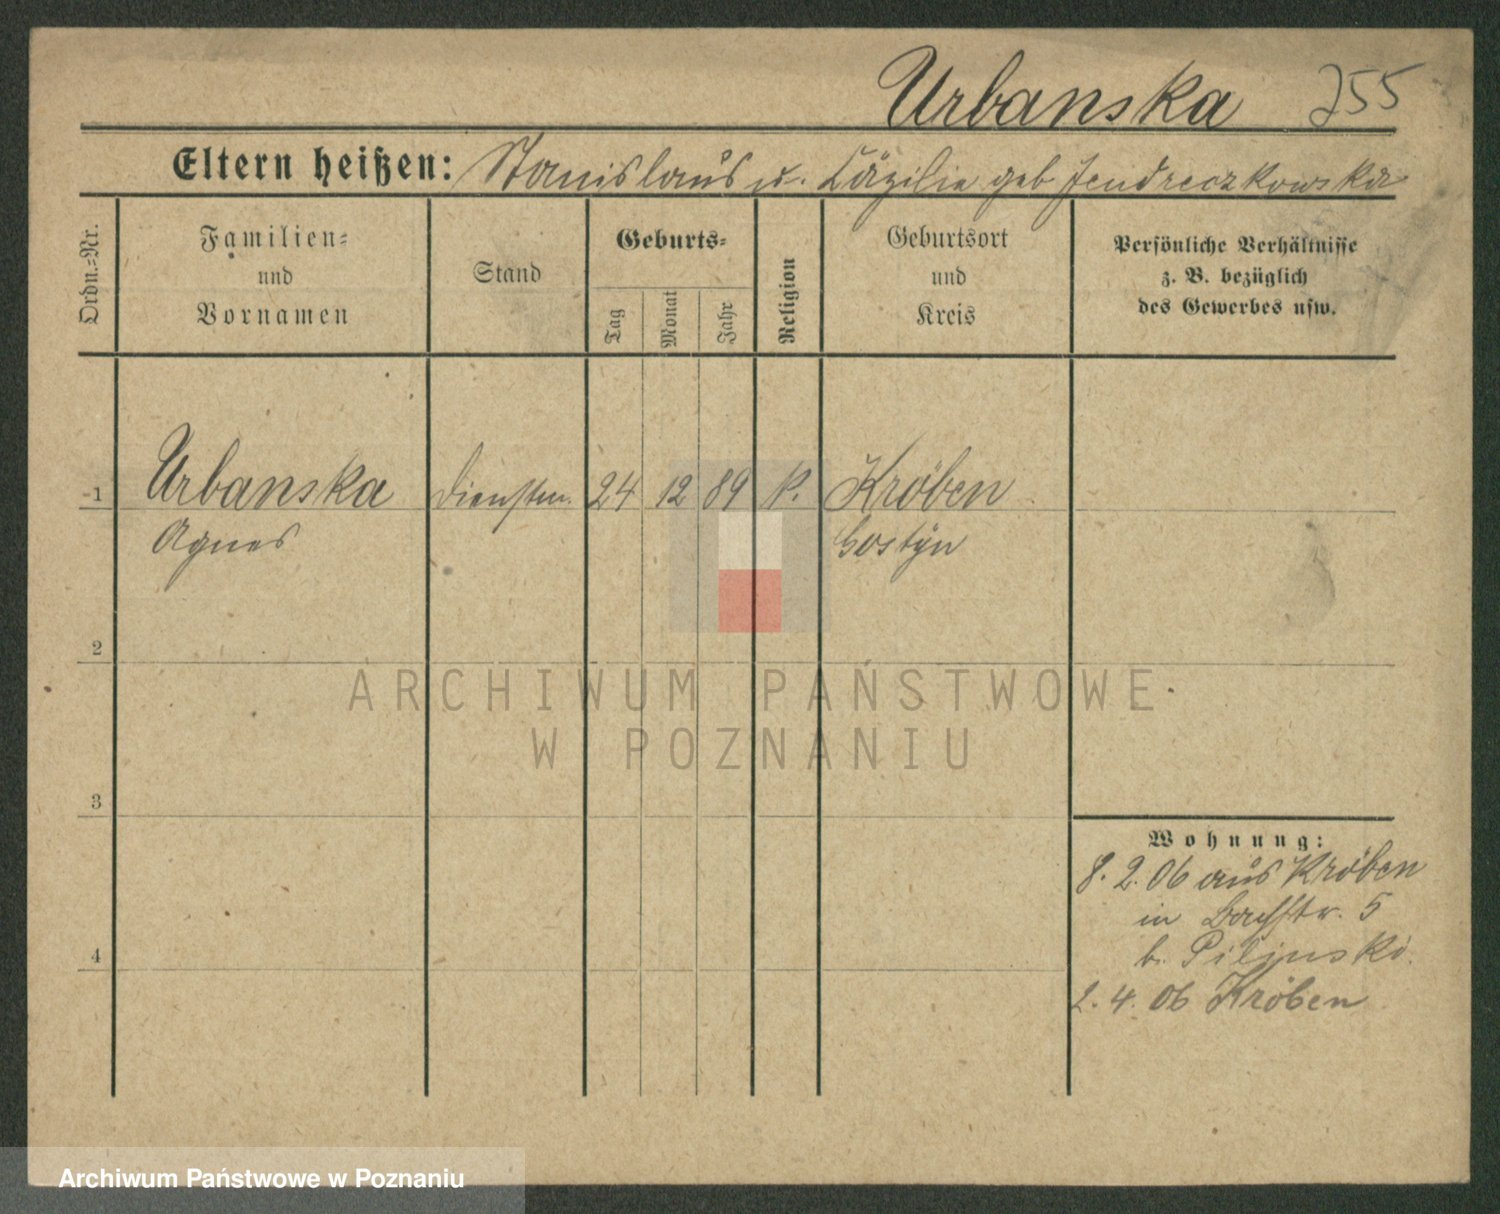 Urbanska 255
Eltern heißen: Stanislaus u. Cäzilie geb Jendreczkowska
Ordn.-Nr.
Familien-
und
Vornamen
Stand
Geburts-
Tag
Monat
Jahr
Religion
Geburtsort
und
Kreis
Persönliche Verhältnisse
z. B. bezüglich
des Gewerbes usw.
1 Urbanska Dienstm. 24 12 89 k. Kröben
Agnes Gostyn
2
ARCHIWUM PAŃSTWOWE
W POZNANIU
3
Wohnung:
8. 2. 06 aus Kröben
in Bachstr. 5
b. Pilinski.
4
2. 4. 06 Kröben
Archiwum Państwowe w Poznaniu